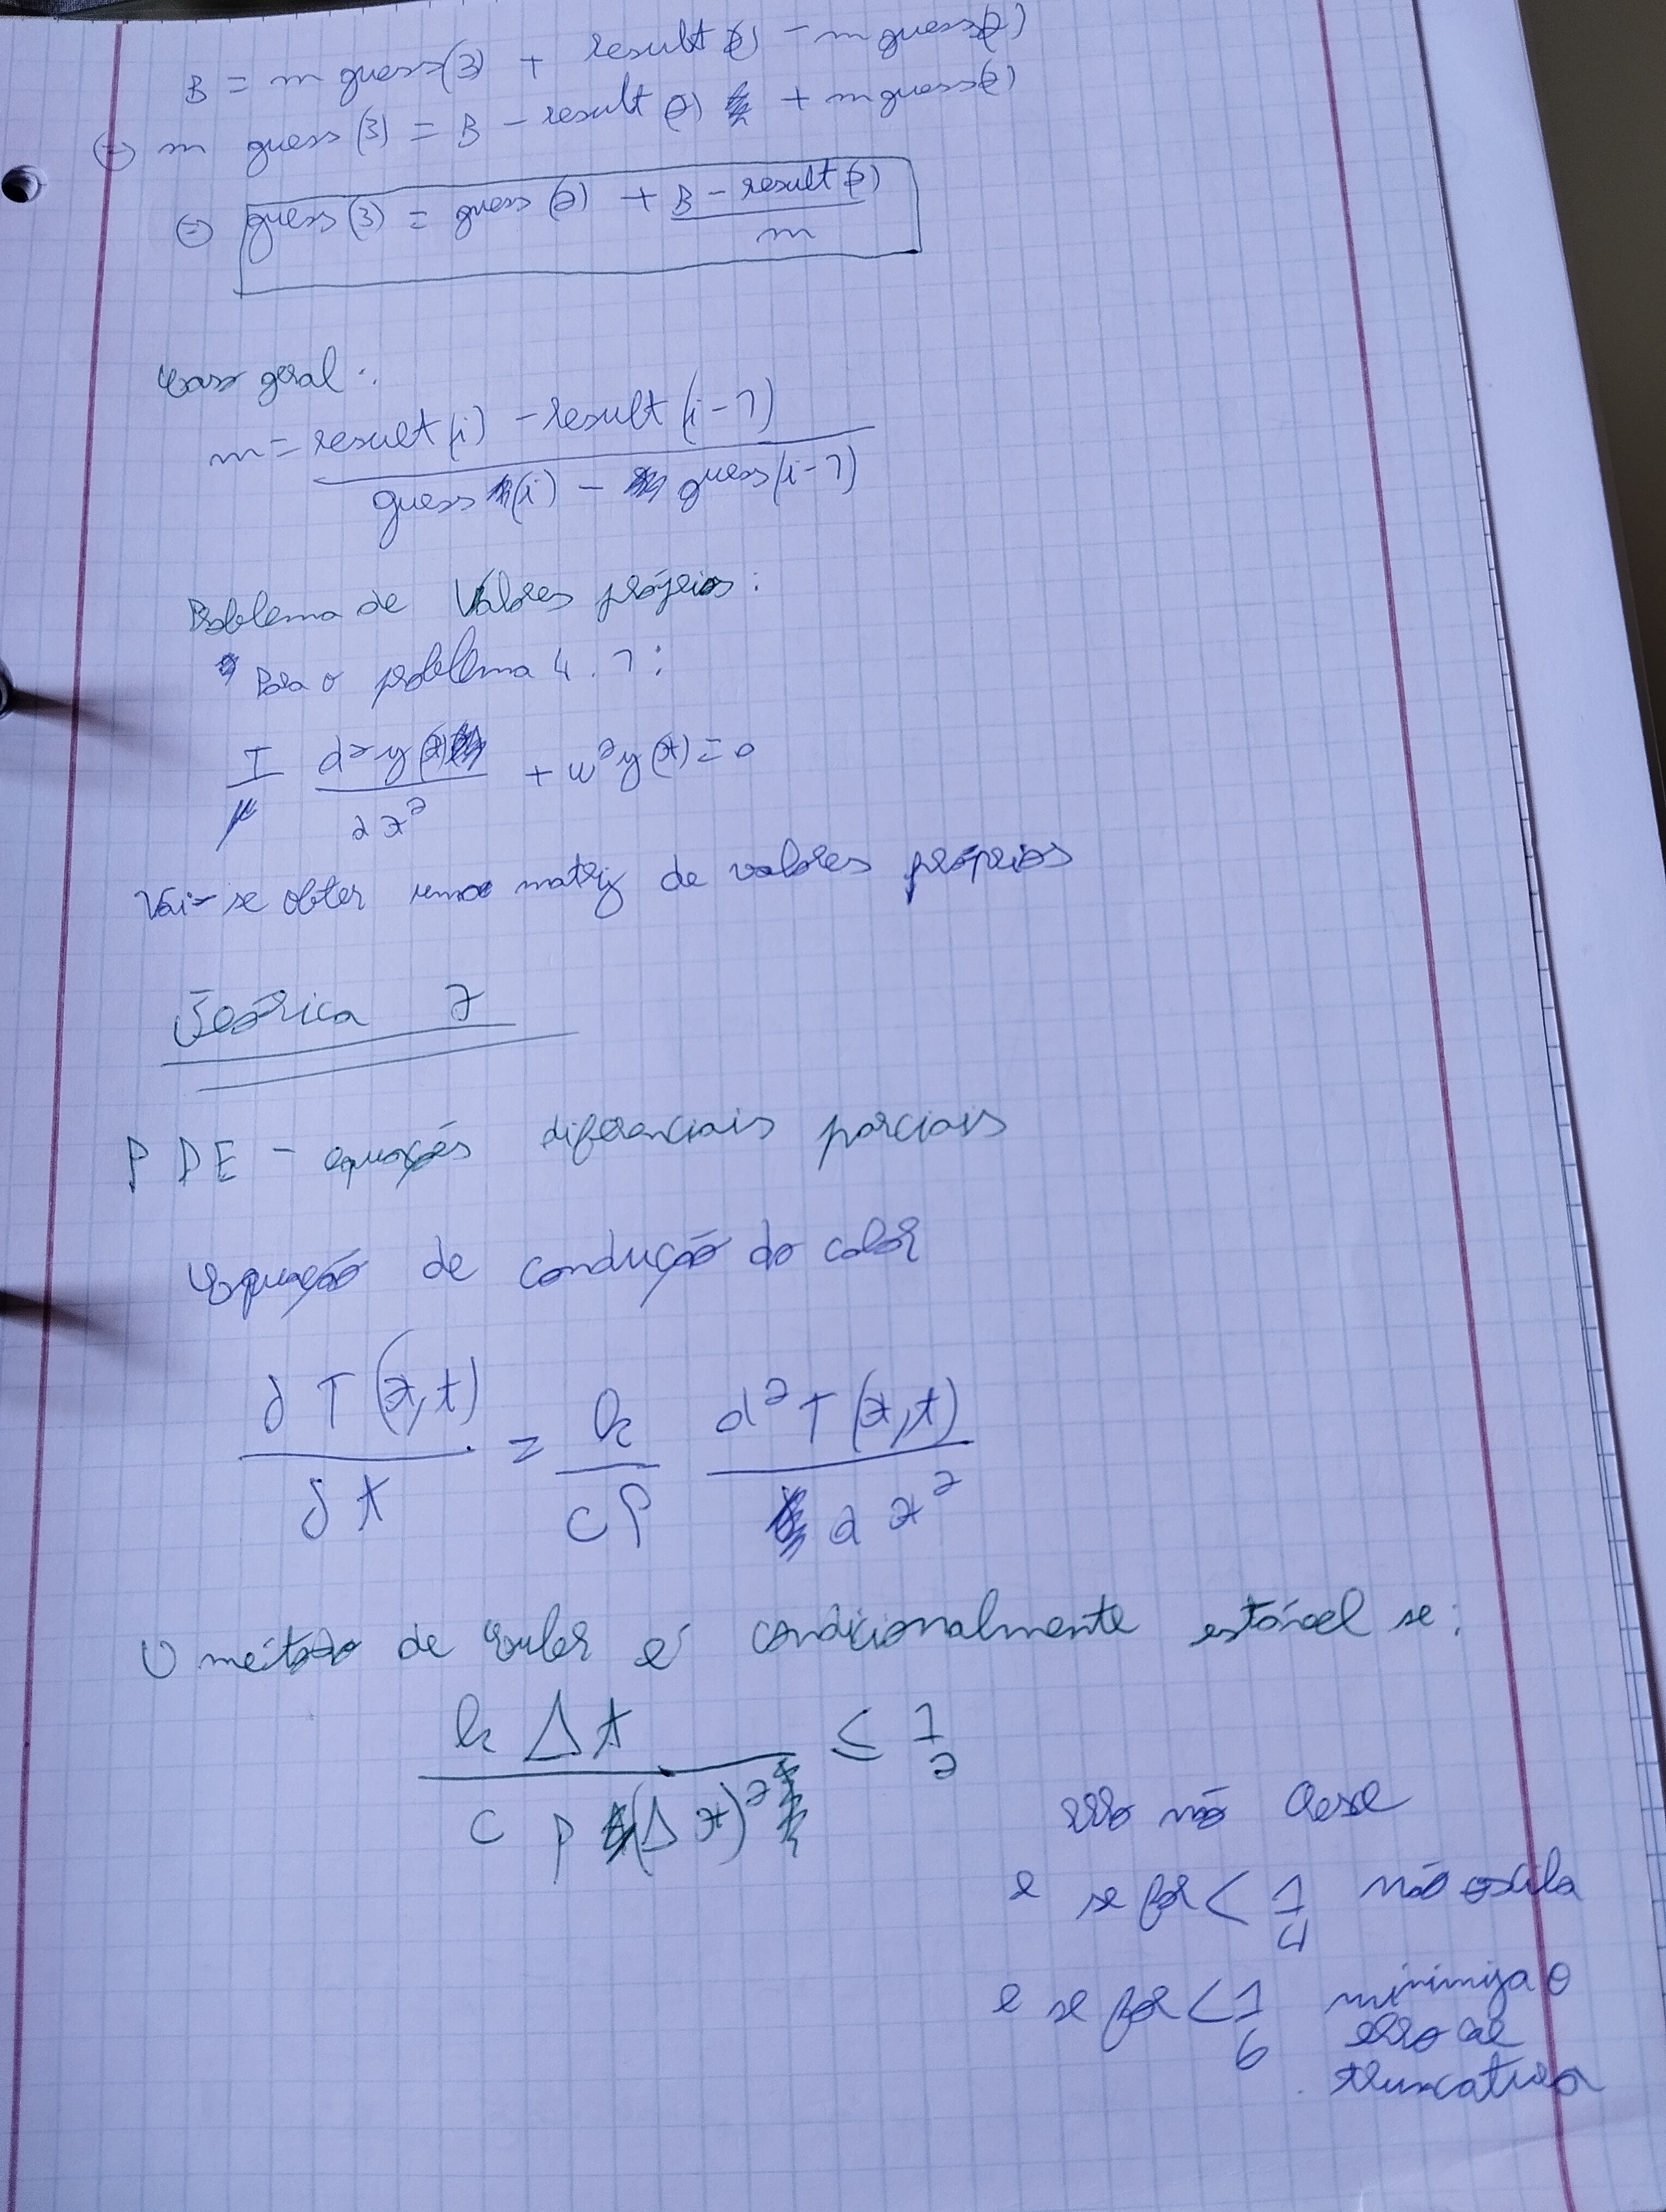 B = m guess(3) + result(2) - m guess(2)
⇔ m guess(3) = B - result(2) + m guess(2)
⇔ guess(3) = guess(2) + (B - result(2)) / m
Caso geral:
m = (result(i) - result(i-1)) / (guess(i) - guess(i-1))
Problema de Valores próprios:
Para o problema 4.1:
T/μ d²y(x)/dx² + w²y(x) = 0
Vai-se obter uma matriz de valores próprios
Teórica 7
PDE - equações diferenciais parciais
Equação de condução do calor
∂T(x,t)/∂t = k/(cρ) d²T(x,t)/dx²
O método de Euler é condicionalmente estável se:
kΔt / (cρ(Δx)²) ≤ 1/2
Erro não cresce
e se for < 1/4 não oscila
e se for < 1/6 minimiza o
erro de
truncatura